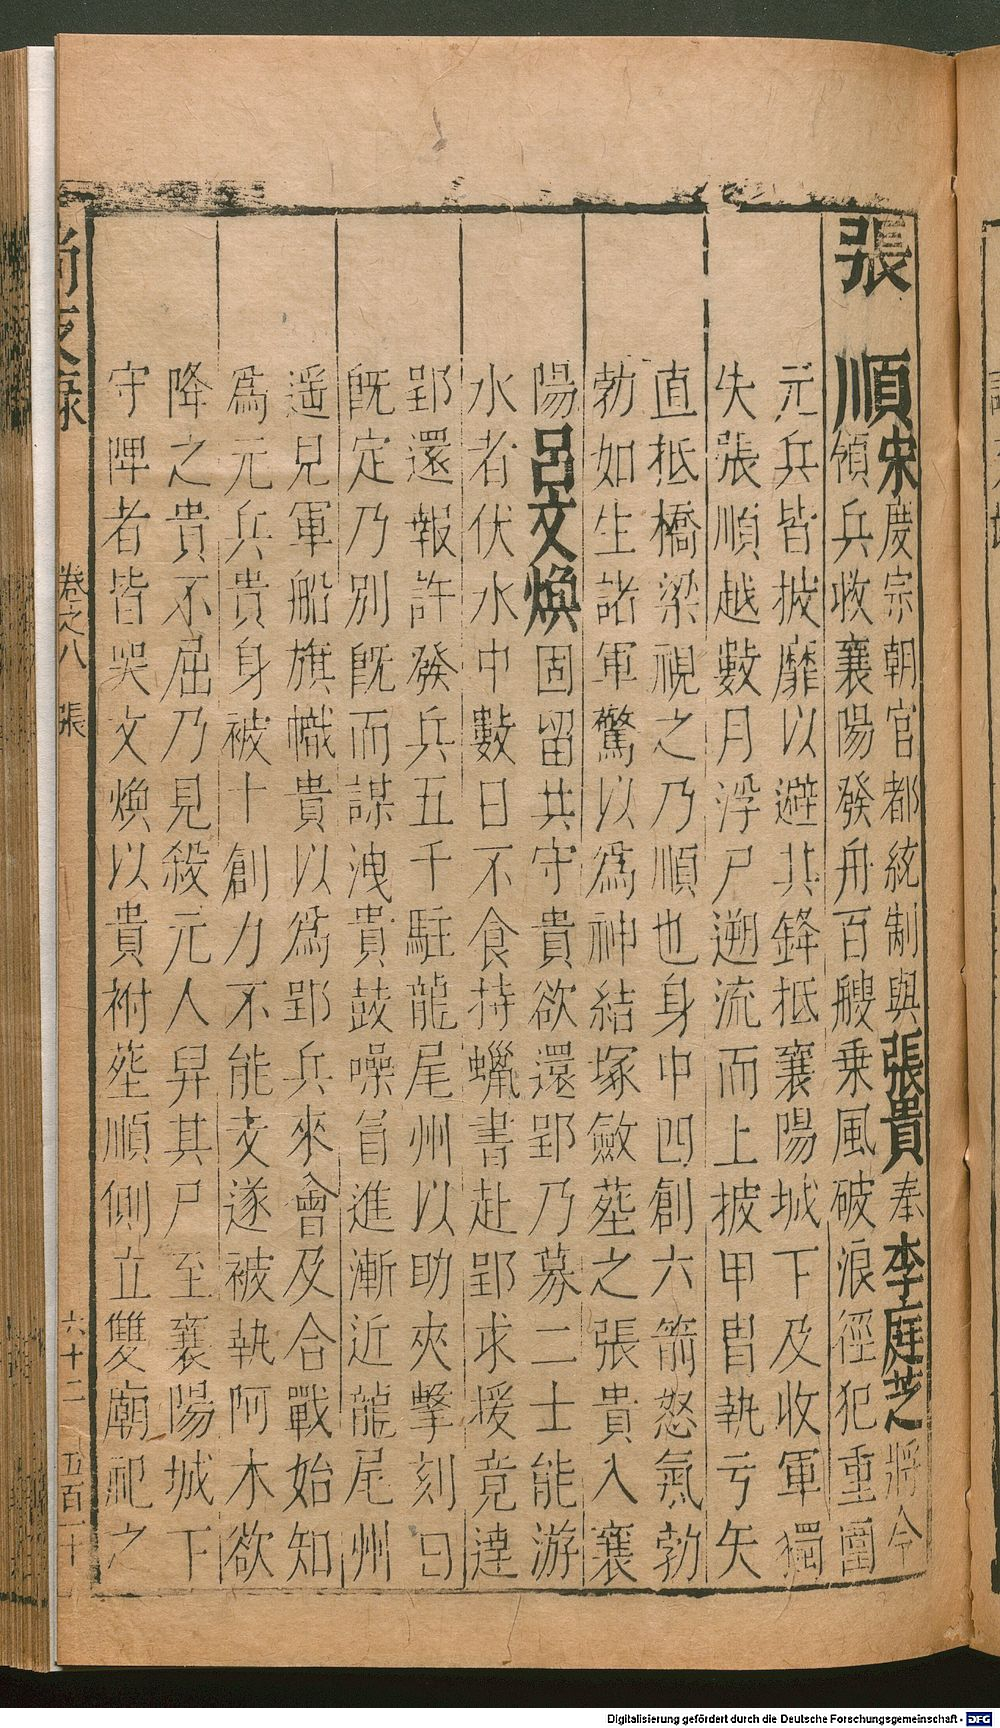 張順宋度宗朝官都統制與張貴奉李庭芝將令
領兵收襄陽發舟百艘乗風破浪徑犯重圍
元兵皆披靡以避其鋒抵襄陽城下及收軍獨
失張順越數月浮尸遡流而上披甲冑執弓矢
直抵橋梁視之乃順也身中四創六箭怒氣勃
勃如生諸軍驚以為神結塚斂塟之張貴入襄
陽呂文煥固留共守貴欲還郢乃募二士能游
水者伏水中數日不食持蠟書赴郢求援竟達
郢還報許發兵五千駐龍尾州以助夾擊刻日
旣定乃別旣而謀洩貴鼓噪冒進漸近龍尾州
遥見軍船旗幟貴以為郢兵來會及合戰始知
為元兵貴身被十創力不能支遂被執阿木欲
降之貴不屈乃見殺元人舁其尸至襄陽城下
守陴者皆哭文煥以貴祔塟順側立雙廟祀之
尚友錄 卷之八 張 六十二 五百二十
Digitalisierung gefördert durch die Deutsche Forschungsgemeinschaft - DFG